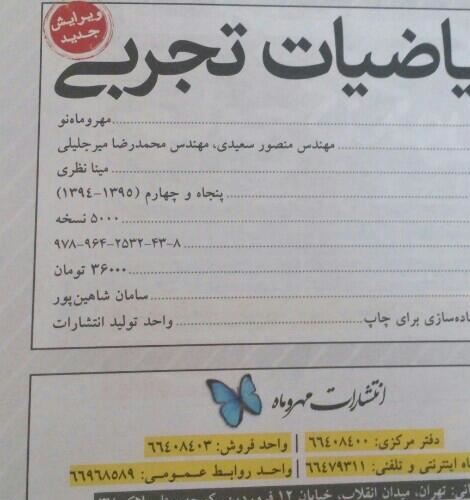 ویرایش جدید
یاضیات تجربی
مهروماه‌نو
مهندس منصور سعیدی، مهندس محمدرضا میرجلیلی
مینا نظری
پنجاه و چهارم (۱۳۹۵-۱۳۹۴)
۵۰۰۰ نسخه
۹۷۸-۹۶۴-۲۵۳۲-۴۳-۸
۳۶۰۰۰ تومان
سامان شاهین‌پور
اده‌سازی برای چاپ واحد تولید انتشارات
انتشارات مهروماه
دفتر مرکزی: ۶۶۴۰۸۴۰۰ | واحد فروش: ۶۶۴۰۸۴۰۳
اه اینترنتی و تلفنی: ۶۶۴۷۹۳۱۱ | واحد روابط عمومی: ۶۶۹۶۸۵۸۹
تهران، میدان انقلاب، خیابان ۱۲ فروردین